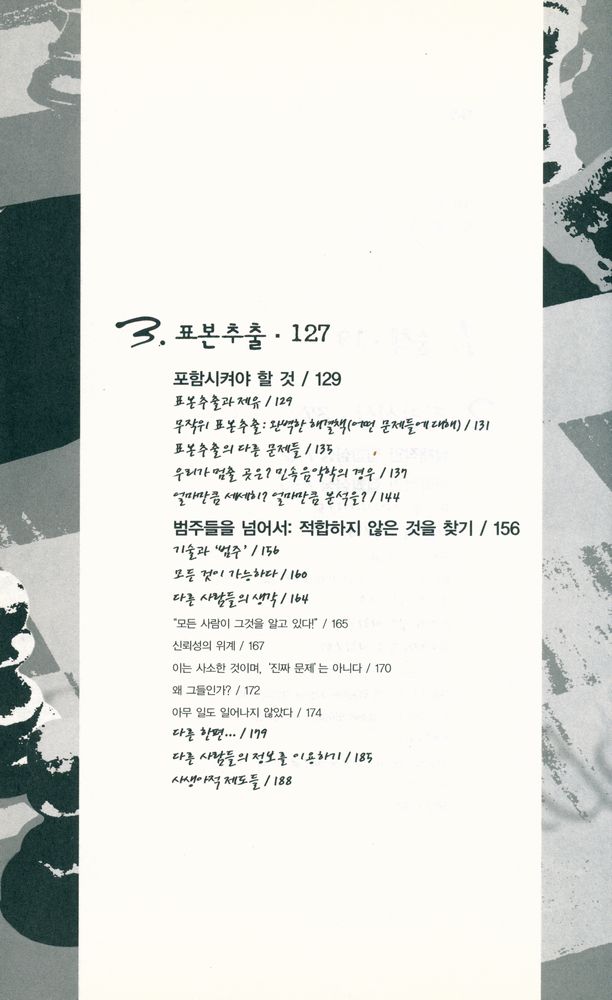 3. 표본추출 · 127
포함시켜야 할 것 / 129
표본추출과 제유 / 129
무작위 표본추출: 완벽한 해결책(어떤 문제들에 대해) / 131
표본추출의 다른 문제들 / 135
우리가 멈출 곳은? 민속음악학의 경우 / 137
얼마만큼 세세히? 얼마만큼 분석을? / 144
범주들을 넘어서: 적합하지 않은 것을 찾기 / 156
기술과 '범주' / 156
모든 것이 가능하다 / 160
다른 사람들의 생각 / 164
"모든 사람이 그것을 알고 있다!" / 165
신뢰성의 위계 / 167
이는 사소한 것이며, '진짜 문제'는 아니다 / 170
왜 그들인가? / 172
아무 일도 일어나지 않았다 / 174
다른 한편... / 179
다른 사람들의 정보를 이용하기 / 185
사생아적 제도들 / 188